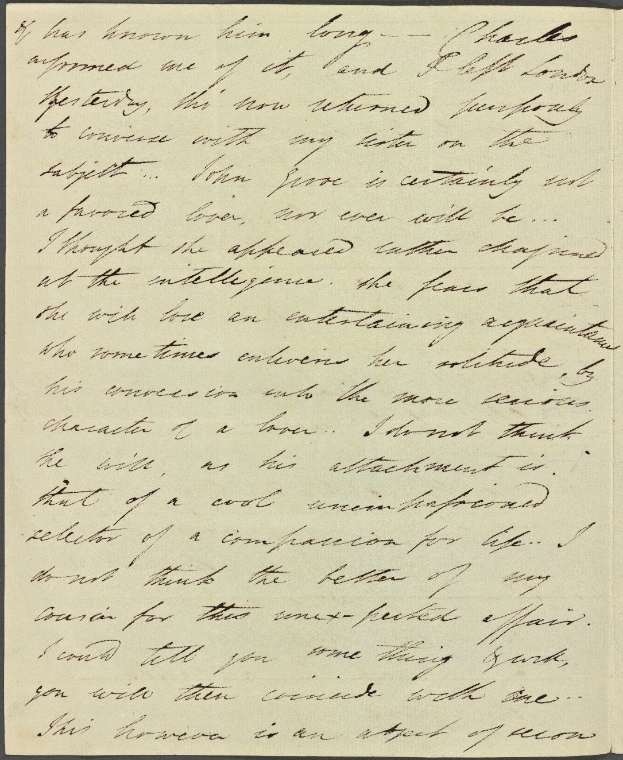 & has known him long — — Charles
informed me of it, and I left London
Yesterday, this now returned purposely
to converse with my sister on the
subject... John Grove is certainly not
a favored lover, nor ever will be...
I thought she appeared rather chagrined
at the intelligence. She fears that
she will lose an entertaining acquaintance
who sometimes enlivens her solitude, by
his conversion into the more serious
character of a lover.. I do not think
he will, as his attachment is
that of a cool unimpassioned
selector of a companion for life.. I
do not think the better of my
cousin for this unex-pected affair.
I could tell you some thing &
you will then coincide with me..
This however is an of